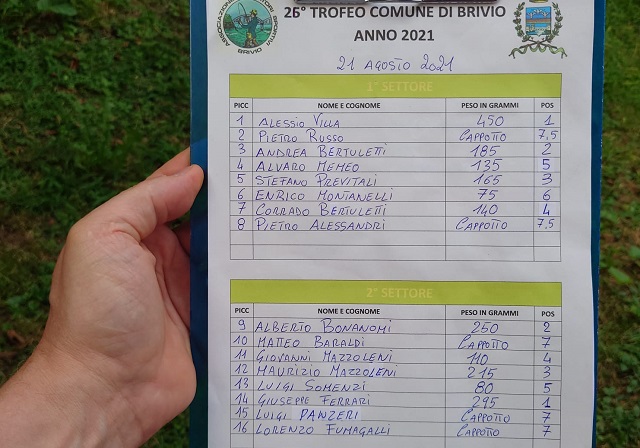 26° TROFEO COMUNE DI BRIVIO
ANNO 2021
21 AGOSTO 2021
1° SETTORE
PICC NOME E COGNOME PESO IN GRAMMI POS
1 ALESSIO VILLA 450 1
2 PIETRO RUSSO CAPPOTTO 7,5
3 ANDREA BERTULETTI 185 2
4 ALVARO MEMEO 135 5
5 STEFANO PREVITALI 165 3
6 ENRICO MONTANELLI 75 6
7 CORRADO BERTULETTI 140 4
8 PIETRO ALESSANDRI CAPPOTTO 7,5
2° SETTORE
PICC NOME E COGNOME PESO IN GRAMMI POS
9 ALBERTO BONANOMI 250 2
10 MATTEO BARALDI CAPPOTTO 7
11 GIOVANNI MAZZOLENI 110 4
12 MAURIZIO MAZZOLENI 215 3
13 LUIGI SOMENZI 80 5
14 GIUSEPPE FERRARI 295 1
15 LUIGI PANZERI CAPPOTTO 7
16 LORENZO FUMAGALLI CAPPOTTO 7